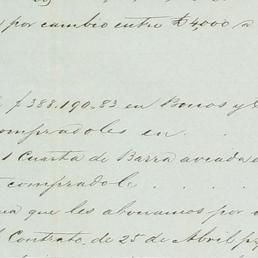 por cambio entre £4,000 a
f 388.190.83 en Bonos y
compradoles en . . .
1 Cuarta de Barra aviada
compradole . . . .
que les abonamos por
Contrato de 25 de Abril